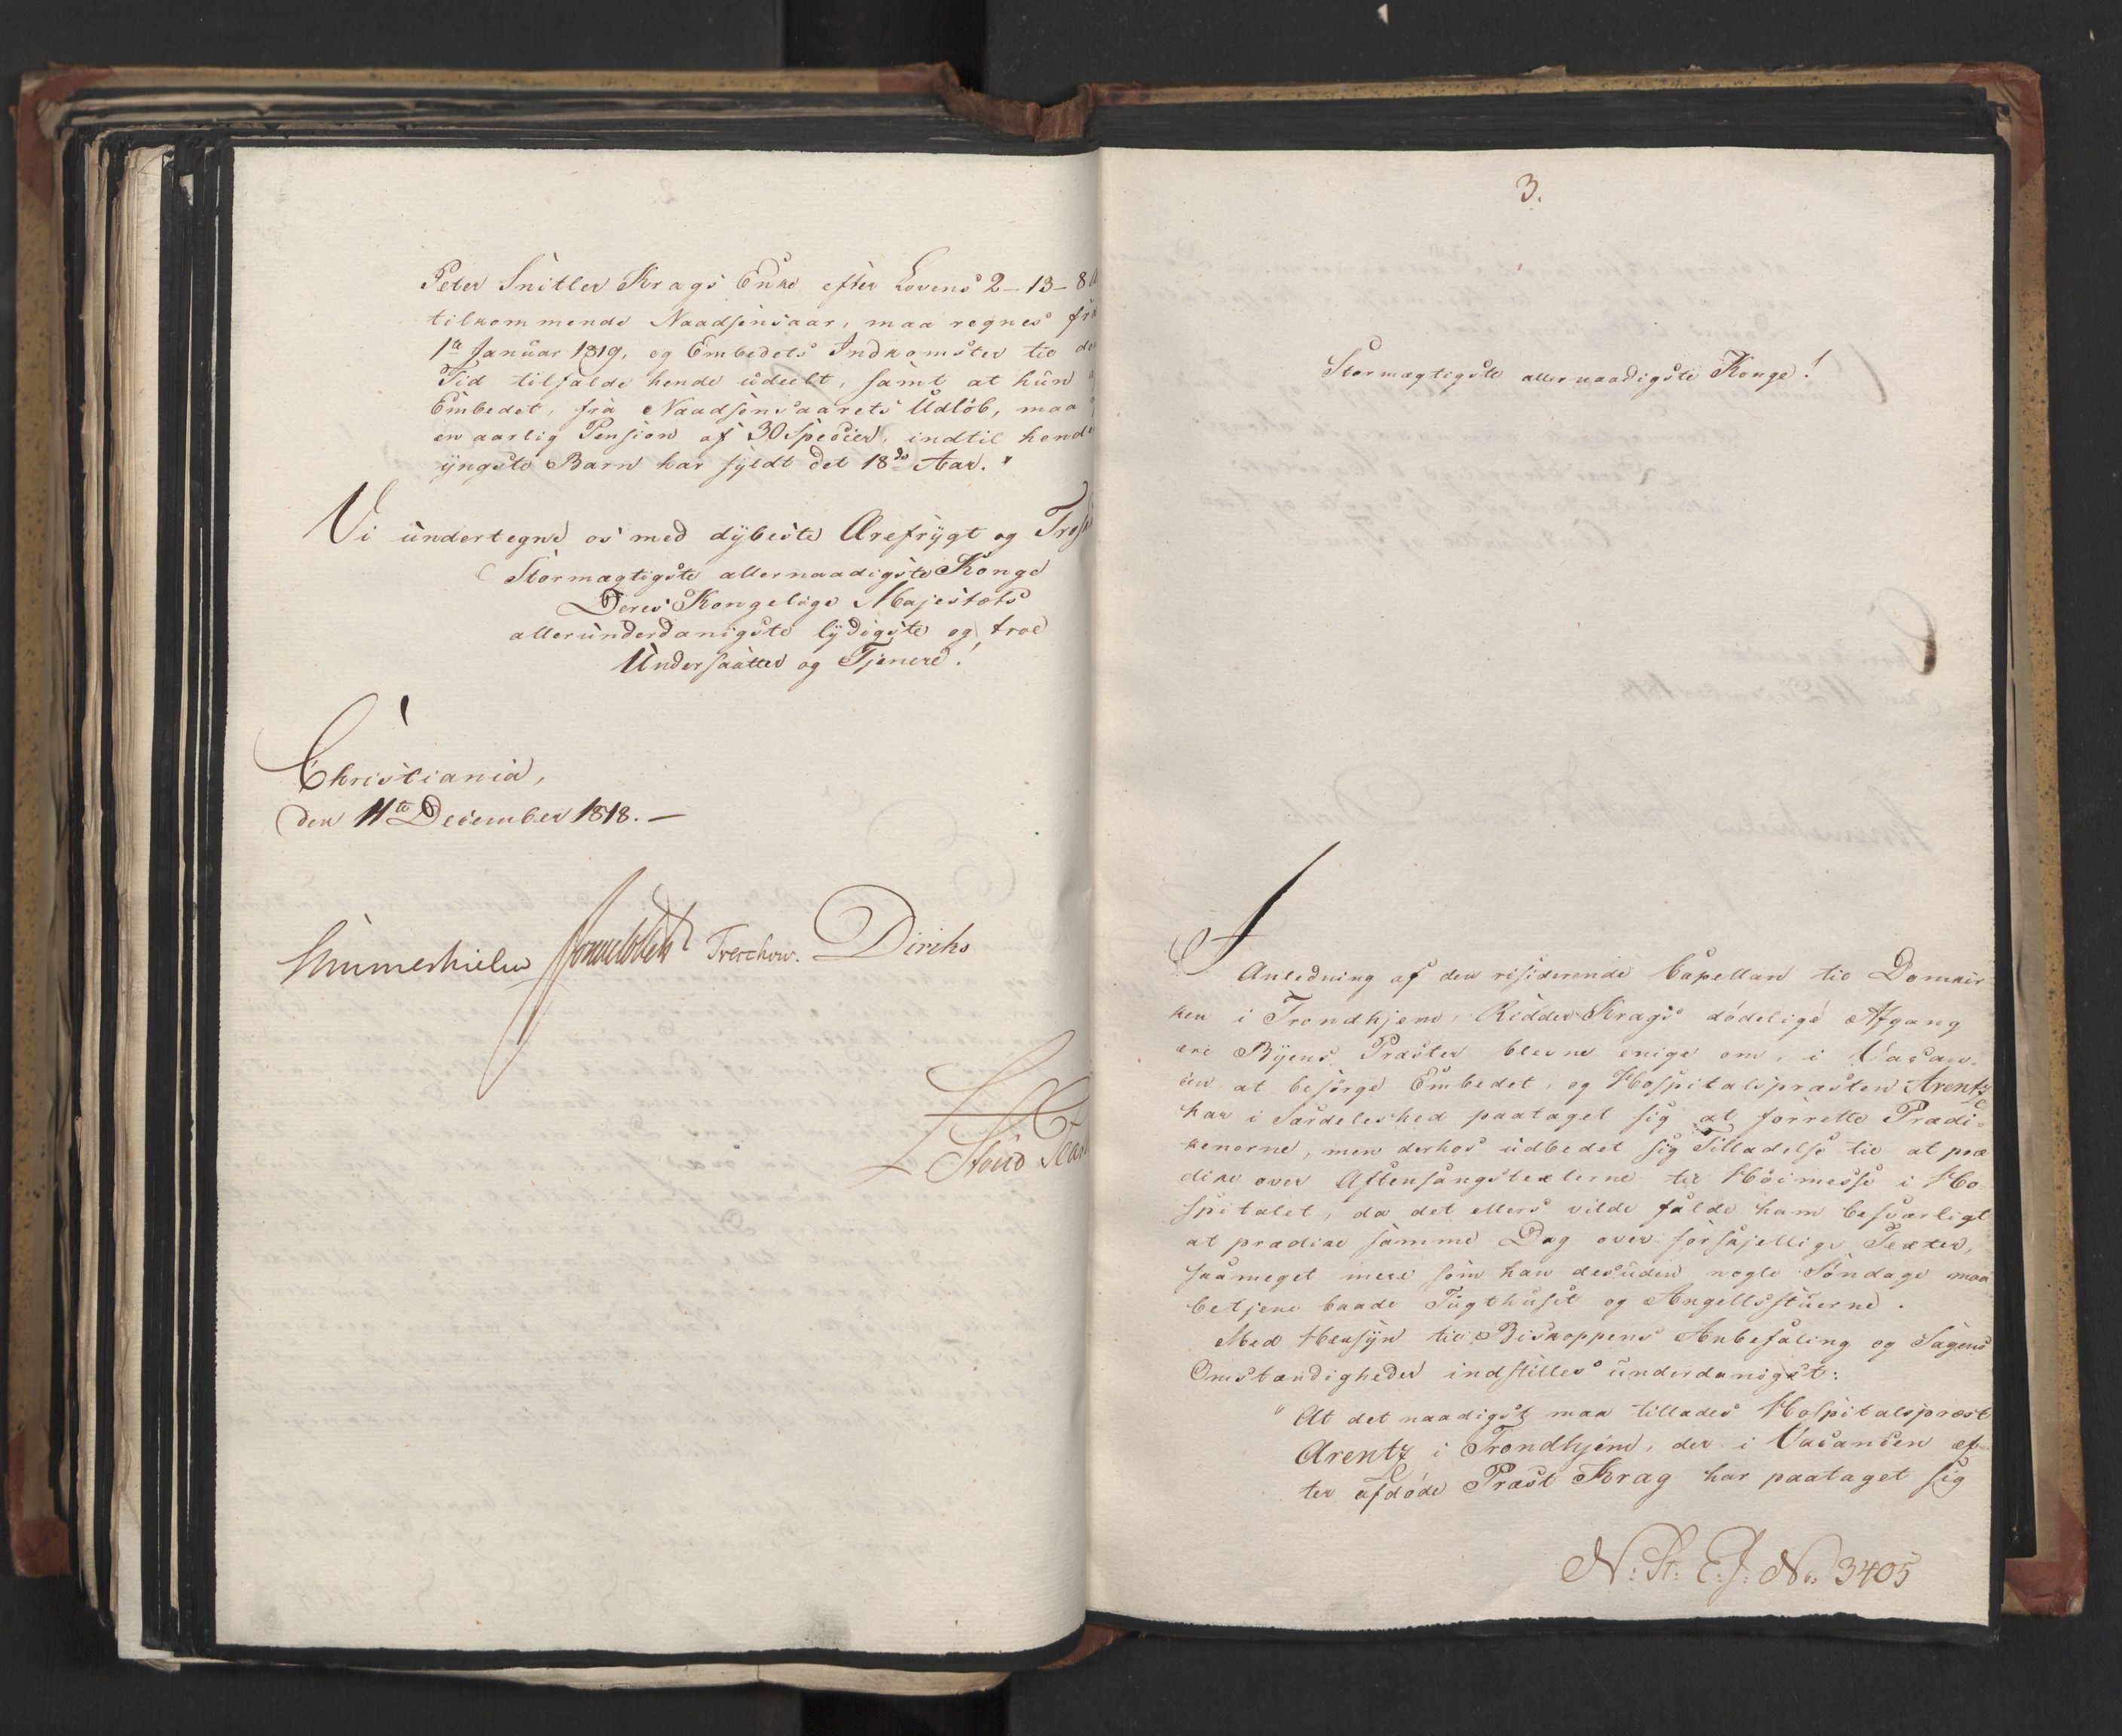 Peter Snitler Krags Enke efter Lovens 2-13-8
tilkommende Naadsensaar, maa regnes fra
1ste Januar 1819, og Embedets Indkomster til
Tid tilfalde hende udeelt, samt at hun
Embedet, fra Naadsensaarets Udløb, maa
en aarlig Pension af 30 Specier, indtil hende
yngste Barn har fyldt det 18de Aar."
Vi undertegne os med dybeste Ærefrygt og
Stormægtigste allernaadigste Konge
Deres Kongelige Majestæts
allerunderdanigste lydigste og troe
Undersaatter og Tjenere!
Christiania,
den 11te December 1818. —
Sommerhielm Treschow. Diriks
3.
Stormægtigste allernaadigste Konge!
I
Anledning af den residerende Capellan til Domkir-
ken i Trondhjem, Ridder Krags dødelige Afgang
ere Byens Præster blevne enige om, i Vacan-
cen at besørge Embedet, og Hospitalspræsten Arentz
har i Særdeleshed paataget sig at forrette Prædi-
kenerne, men derhos udbedet sig Tilladelse til at præ
dike over Aftensangstexterne til Høimesse i Ho-
spitalet, da det ellers vilde falde ham besværligt
at prædike samme Dag over forskjellige Texter,
saameget mere som han desuden nogle Søndage maa
betjene baade Tugthuset og Angellsstuerne.
Med Hensyn til Biskoppens Anbefaling og Sagens
Omstændigheder indstilles underdanigst:
" At det naadigst maa tillades Hospitalspræst
Arentz i Trondhjem, der i Vacancen ef-
ter afdøde Præst Krag har paataget sig
N: St: E: J: No. 3405